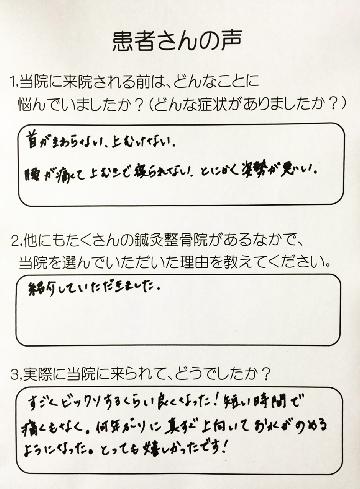 患者さんの声
1.当院に来院される前は、どんなことに
悩んでいましたか？（どんな症状がありましたか？）
首がまわらない、上むけない。
腰が痛くて上むきで寝られない。とにかく姿勢が悪い。
2.他にもたくさんの鍼灸整骨院があるなかで、
当院を選んでいただいた理由を教えてください。
紹介していただきました。
3.実際に当院に来られて、どうでしたか？
すごくビックリするくらい良くなった！短い時間で
痛くもなく。何年かぶりに真すぐ上向いてお水がのめる
ようになった。とっても嬉しかったです！